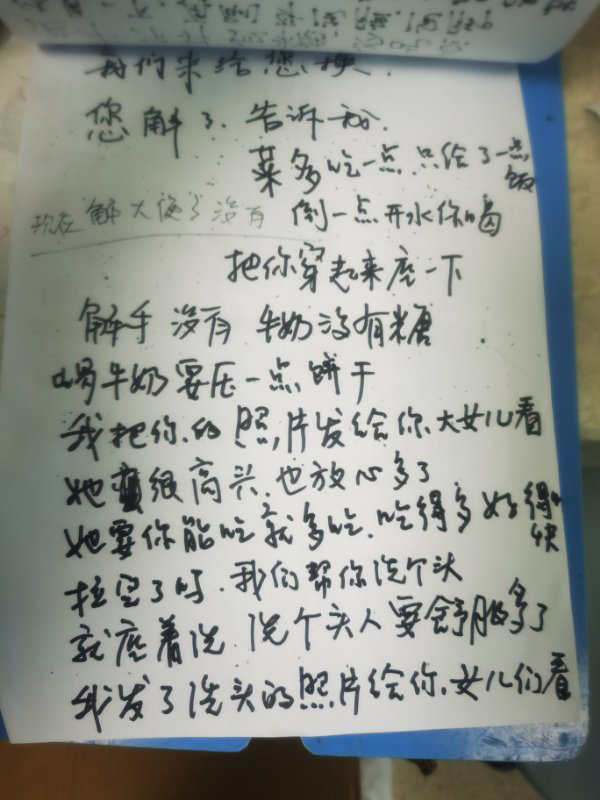 我们来给您换.
您解了.告诉我.
菜多吃一点.只给了一点饭
现在解大便了没有 倒一点开水你喝
把你穿起来座一下
解手没有 牛奶没有糖
喝牛奶要压一点饼干
我把你的照片发给你大女儿看
她很高兴.也放心多了
她要你能吃就多吃.吃得多好得快
拉完了吗.我们帮你洗个头
就座着洗 洗个头人要舒服多了
我发了洗头的照片给你女儿们看